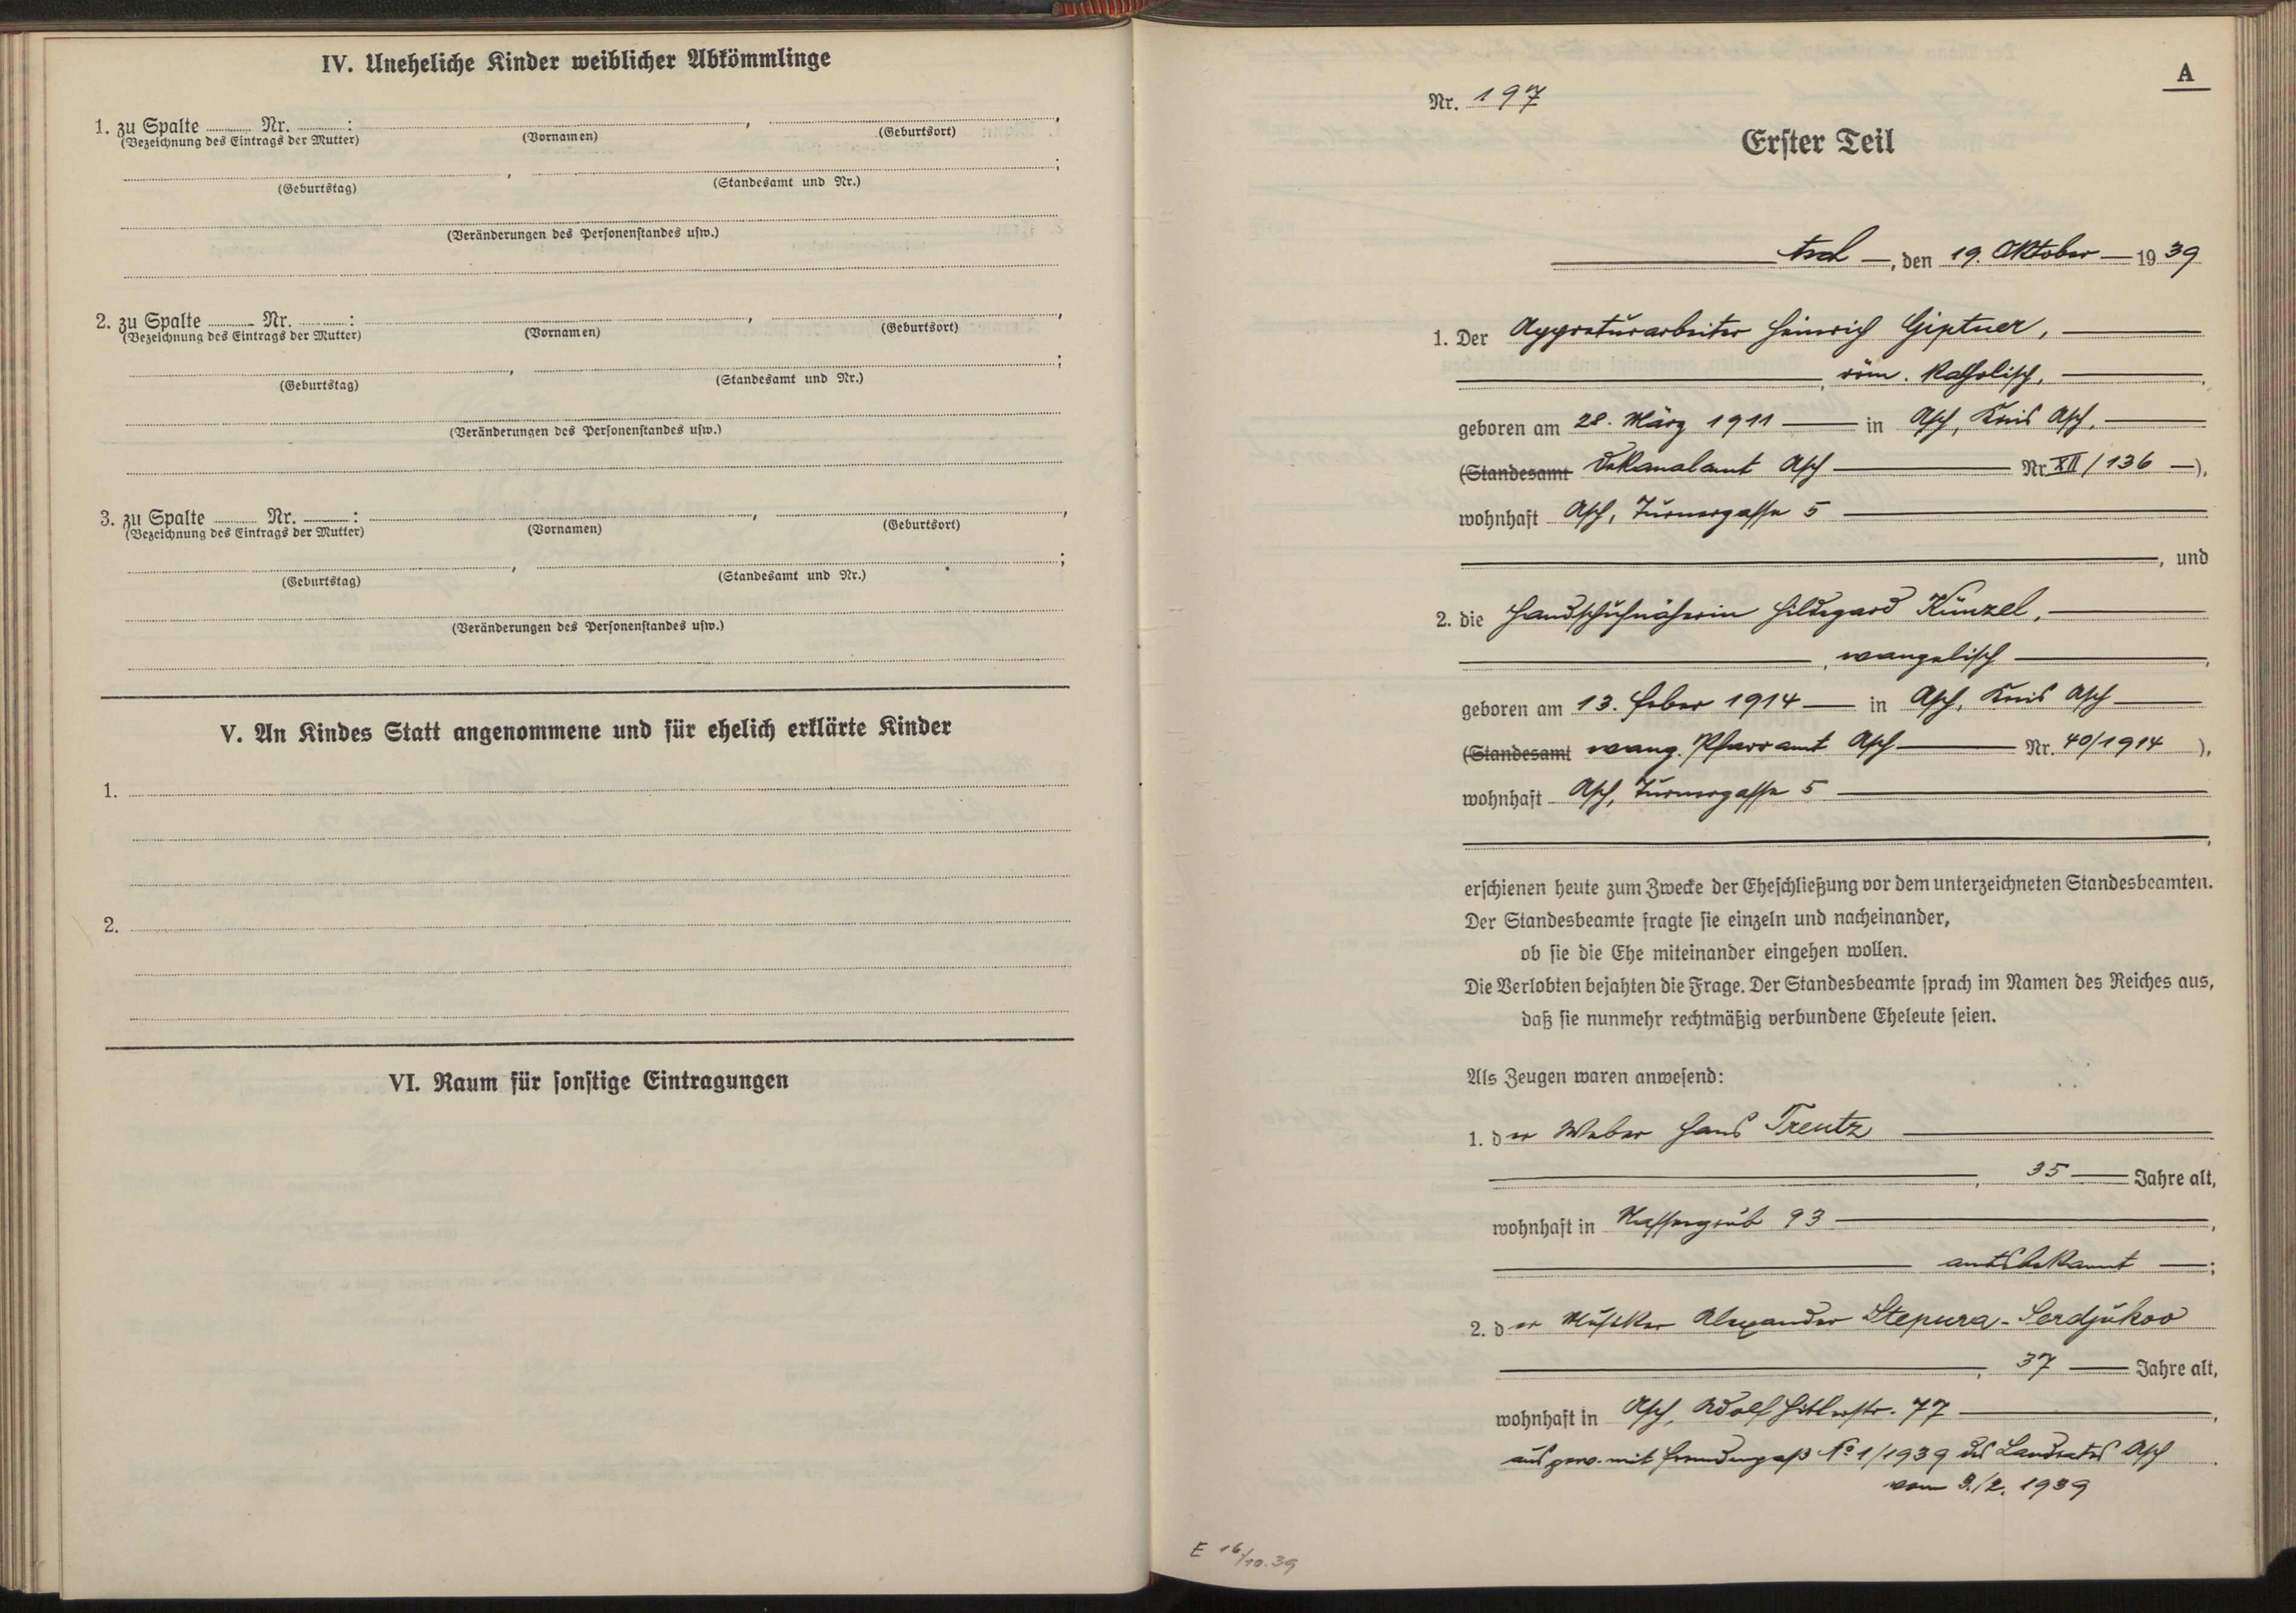 IV. Uneheliche Kinder weiblicher Abkömmlinge
1. zu Spalte ........ Nr. ........:
(Bezeichnung des Eintrags der Mutter) (Vornamen) , (Geburtsort) ,
(Geburtstag) , (Standesamt und Nr.) ;
(Veränderungen des Personenstandes usw.)
2. zu Spalte ........ Nr. ........:
(Bezeichnung des Eintrags der Mutter) (Vornamen) , (Geburtsort) ,
(Geburtstag) , (Standesamt und Nr.) ;
(Veränderungen des Personenstandes usw.)
3. zu Spalte ........ Nr. ........:
(Bezeichnung des Eintrags der Mutter) (Vornamen) , (Geburtsort) ,
(Geburtstag) , (Standesamt und Nr.) ;
(Veränderungen des Personenstandes usw.)
V. An Kindes Statt angenommene und für ehelich erklärte Kinder
1.
2.
VI. Raum für sonstige Eintragungen
A
Nr. 197
Erster Teil
Asch —, den 19. Oktober — 1939
1. Der Appreturarbeiter Heinrich Giptner,
, röm. katholisch,
geboren am 28. März 1911 — in Asch, Kreis Asch,
(Standesamt Dekanalamt Asch — Nr. XII/136 —),
wohnhaft Asch, Turnergasse 5
, und
2. die Handschuhnäherin Hildegard Künzel,
, evangelisch ,
geboren am 13. Feber 1914 — in Asch, Kreis Asch
(Standesamt evang. Pfarramt Asch — Nr. 40/1914 ),
wohnhaft Asch, Turnergasse 5
,
erschienen heute zum Zwecke der Eheschließung vor dem unterzeichneten Standesbeamten.
Der Standesbeamte fragte sie einzeln und nacheinander,
ob sie die Ehe miteinander eingehen wollen.
Die Verlobten bejahten die Frage. Der Standesbeamte sprach im Namen des Reiches aus,
daß sie nunmehr rechtmäßig verbundene Eheleute seien.
Als Zeugen waren anwesend:
1. der Weber Hans Treutz
, 35 — Jahre alt,
wohnhaft in Nassengrub 93 ,
amtsbekannt —;
2. der Musiker Alexander Stepura-Serdjukov
, 37 — Jahre alt,
wohnhaft in Asch, Adolf Hitlerstr. 77 ,
ausgew. mit Fremdenpaß No 1/1939 des Landrates Asch .
vom 3./2. 1939
E 16/10.39